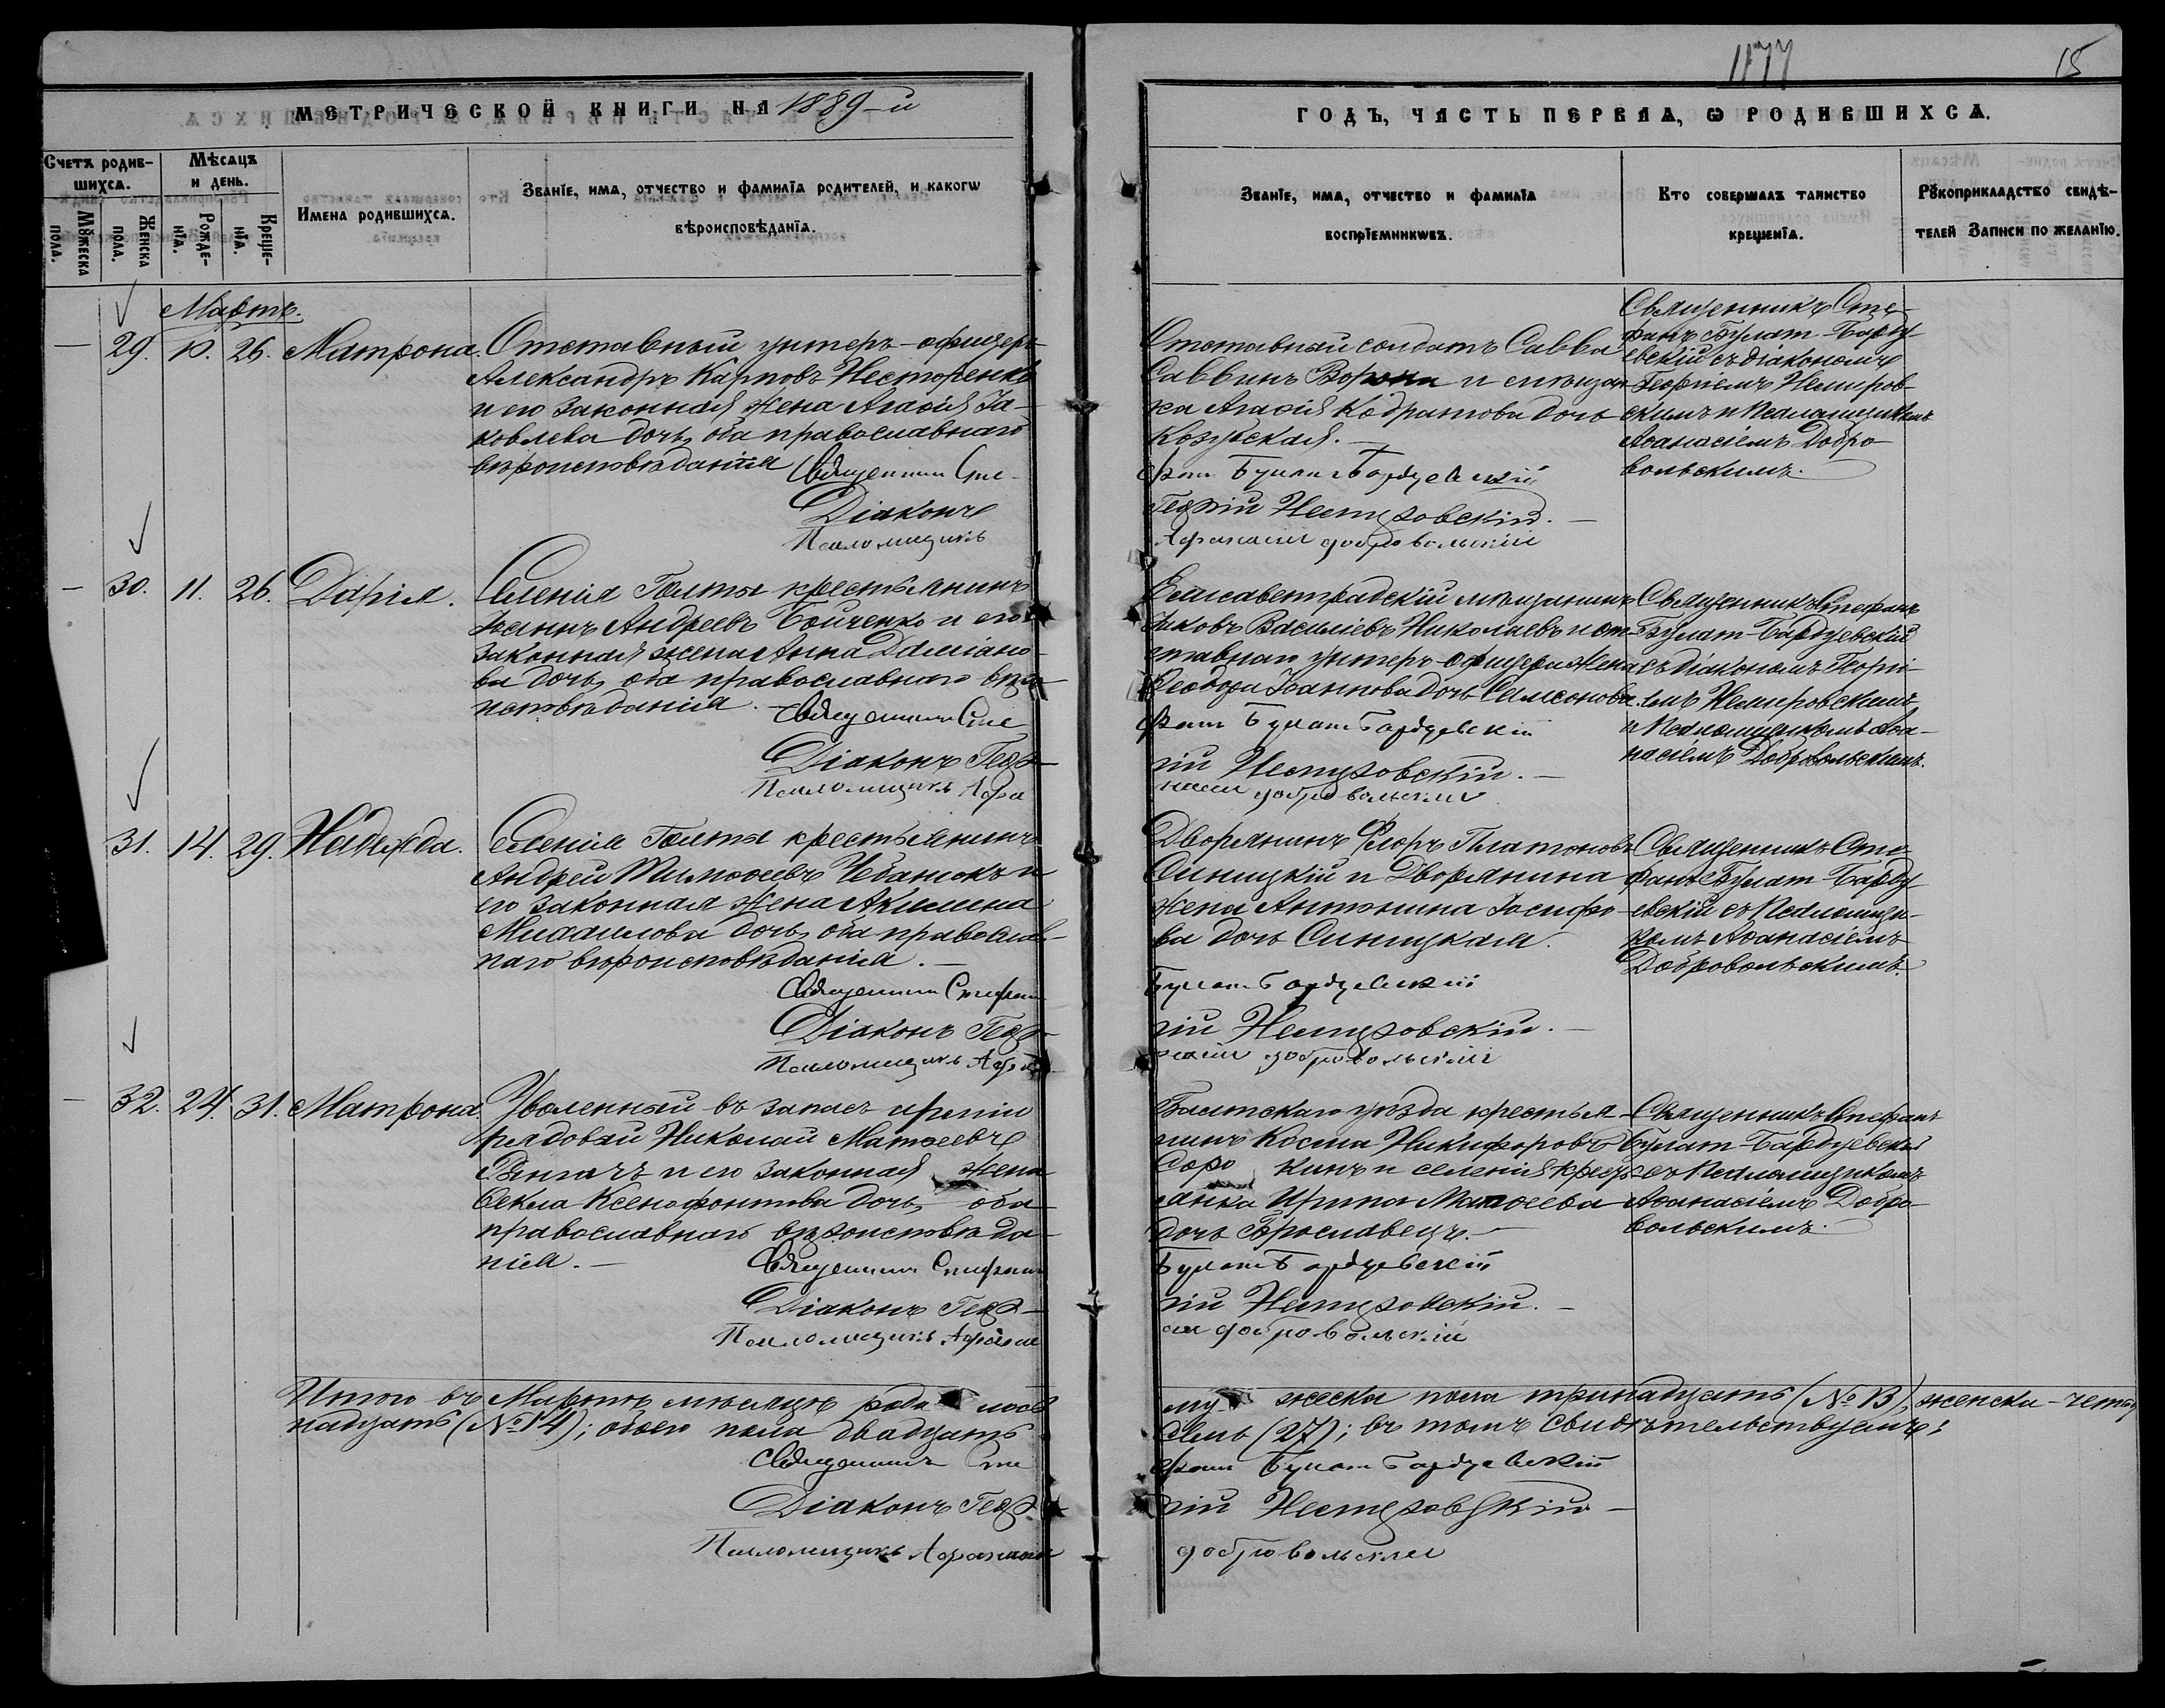 1177
15
МЕТРИЧЕСКОЙ КНИГИ НА 1889-й
Счетъ родившихся.
Мѣсяцъ и день.
Мужеска пола.
Женска пола.
Рожденія.
Крещенія.
Имена родившихся.
Званіе, имя, отчество и фамилія родителей, и какогѡ
вѣроисповѣданія.
Мартъ.
29. 10. 26. Матрона.
Отставный унтеръ-офицеръ
Александръ Карповъ Нестеренко
и его законная жена Агаѳія Іа-
ковлева дочь, оба православнаго
вѣроисповѣданія
Священникъ Сте-
Діаконъ
Псаломщикъ
30. 11. 26. Дарія.
Селенія Голты крестьянинъ
Іоаннъ Андреевъ Бойченко и его
законная жена Анна Даміано-
ва дочь, оба православнаго вѣро-
исповѣданія.
Священникъ Сте
Діаконъ Геор-
Псаломщикъ Афа
31. 14. 29. Надежда.
Селенія Голты крестьянинъ
Андрей Тимоѳеевъ Чебанюкъ и
его законная жена Акилина
Михаилова дочь, оба православ-
наго вѣроисповѣданія.
Священникъ Стефанъ
Діаконъ Геор-
Псаломщикъ Афа
32. 24. 31. Матрона.
Уволенный въ запасъ арміи
рядовый Николай Матѳеевъ
и его законная жена
Ѳекла Ксенофонтова дочь, оба
православнаго вѣроисповѣда-
нія.
Священникъ Стефанъ
Діаконъ Геор-
Псаломщикъ Афанас
Итого въ Мартѣ мѣсяцѣ роди лось
надцать (№ 14); обоего пола двадцать
Священникъ Сте
Діаконъ Геор-
Псаломщикъ Афанасій
ГОДЪ, ЧАСТЬ ПЕРВАЯ, Ѡ РОДИВШИХСЯ.
Званіе, имя, отчество и фамилія
воспріемникѡвъ.
Кто совершалъ таинство
крещенія.
Рукоприкладство свидѣ-
телей записи по желанію.
Отставный солдатъ Савва
Саввинъ и мѣщан-
ка Агаѳія Кодратова дочь
Козубская.
фанъ Булат-Бардуевскій
Георгій Немировскій.
Афанасій Добровольскій
Священникъ Сте-
фанъ Булат-Барду
евскій съ діакономъ
Георгіемъ Немиров-
скимъ и Псаломщикомъ
Аѳанасіемъ Добро-
вольскимъ.
Елисаветградскій мѣщанинъ
Іаковъ Василіевъ Николаевъ и от-
ставнаго унтеръ-офицера жена
Ѳеодора Іоаннова дочь Самсонова.
фанъ Булат Бардуевскій
гій Немировскій.
насій Добровольскій
Священникъ Стефанъ
Булат-Бардуевскій
съ діакономъ Георгі-
емъ Немировскимъ
и Псаломщикомъ Аѳа-
насіемъ Добровольскимъ.
Дворянинъ Флоръ Платоновъ
Синицкій и Дворянина
жена Антонина Іосифо-
ва дочь Синицкая.
Булат Бардуевскій
гій Немировскій.
насій Добровольскій
Священникъ Сте
фанъ Булат-Барду
евскій съ Псаломщи-
комъ Аѳанасіемъ
Добровольскимъ.
Балтскаго уѣзда крестья-
нинъ Косма Никифоровъ
Соро кинъ и селенія крест
янка Ирина Матѳеева
дочь Брославецъ.
Булат Бардуевскій
гій Немировскій.
ій Добровольскій
Священникъ Стефанъ
Булат-Бардуевскій
съ Псаломщикомъ
Аѳанасіемъ Добро-
вольскимъ.
му жеска пола тринадцать (№ 13), женска-четыр
семь (27); въ томъ свидѣтельствуемъ:
фанъ Булат Бардуевскій
гій Немировскій
Добровольскій